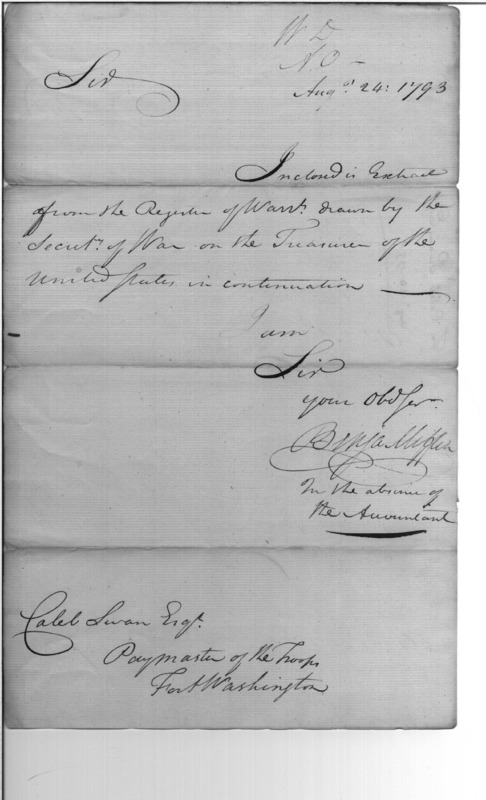 W D
N O –
Augt. 24: 1793
Sir
Inclosed is Extract
from the Register of Warrts. drawn by the
Secrety. of War on the Treasurer of the
United States in continuation —
I am
Sir
your Obd Ser
Benja Mifflin
In the absence of
the Accountant
Caleb Swan Esqr.
Paymaster of the Troops
Fort Washington